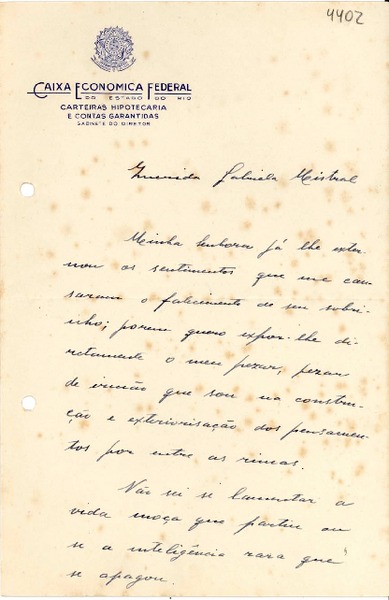 4402
CAIXA ECONOMICA FEDERAL
DO ESTADO DO RIO
CARTEIRAS HIPOTECARIA
E CONTAS GARANTIDAS
GABINETE DO DIRETOR
Querida Gabriela Mistral
Minha senhora já lhe exter-
nou os sentimentos que me cau-
saram o falecimento de seu sobri-
nho; porem quero expor-lhe di-
retamente o meu pezar, pezar
de irmão que sou na constru-
ção e exteriorisação dos pensamen-
tos por entre as rimas.
Não sei se lamentar a
vida moça que partiu ou
se a inteligência rara que
se apagou.